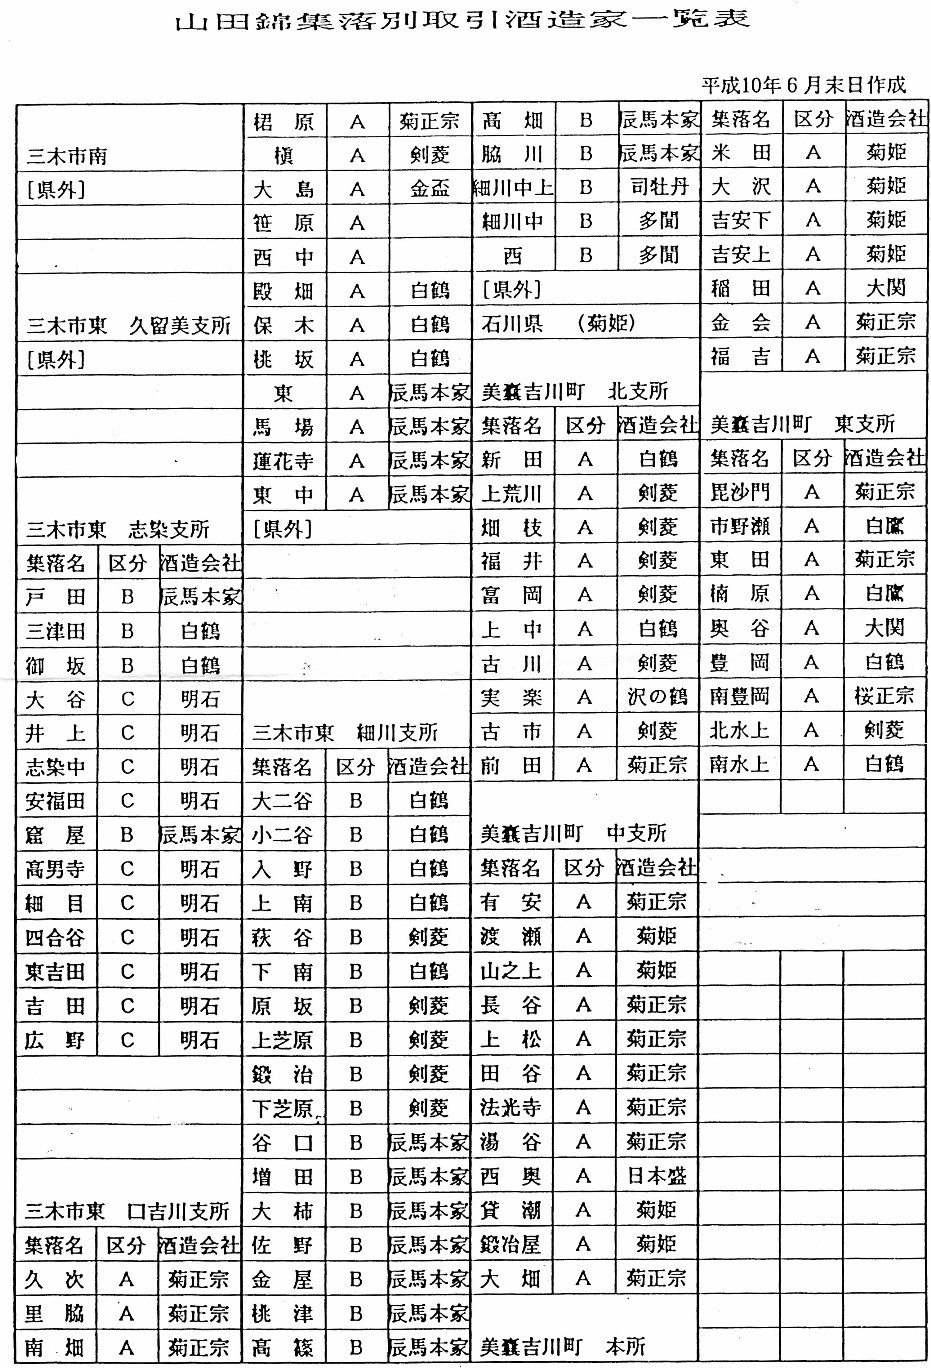 山田錦集落別取引酒造家一覧表
平成10年6月末日作成
三木市南
[県外]
三木市東 久留美支所
[県外]
三木市東 志染支所
集落名 区分 酒造会社
戸田 B 辰馬本家
三津田 B 白鶴
御坂 B 白鶴
大谷 C 明石
井上 C 明石
志染中 C 明石
安福田 C 明石
窟屋 B 辰馬本家
高男寺 C 明石
細目 C 明石
四合谷 C 明石
東吉田 C 明石
吉田 C 明石
広野 C 明石
三木市東 口吉川支所
集落名 区分 酒造会社
久次 A 菊正宗
里脇 A 菊正宗
南畑 A 菊正宗
桾原 A 菊正宗
槇 A 剣菱
大島 A 金盃
笹原 A
西中 A
殿畑 A 白鶴
保木 A 白鶴
桃坂 A 白鶴
東 A 辰馬本家
馬場 A 辰馬本家
蓮花寺 A 辰馬本家
東中 A 辰馬本家
[県外]
三木市東 細川支所
集落名 区分 酒造会社
大二谷 B 白鶴
小二谷 B 白鶴
入野 B 白鶴
上南 B 白鶴
萩谷 B 剣菱
下南 B 白鶴
原坂 B 剣菱
上芝原 B 剣菱
鍛治 B 剣菱
下芝原 B 剣菱
谷口 B 辰馬本家
増田 B 辰馬本家
大柿 B 辰馬本家
佐野 B 辰馬本家
金屋 B 辰馬本家
桃津 B 辰馬本家
高篠 B 辰馬本家
高畑 B 辰馬本家
脇川 B 辰馬本家
細川中上 B 司牡丹
細川中 B 多聞
西 B 多聞
[県外]
石川県 (菊姫)
美嚢吉川町 北支所
集落名 区分 酒造会社
新田 A 白鶴
上荒川 A 剣菱
畑枝 A 剣菱
福井 A 剣菱
富岡 A 剣菱
上中 A 白鶴
古川 A 剣菱
実楽 A 沢の鶴
古市 A 剣菱
前田 A 菊正宗
美嚢吉川町 中支所
集落名 区分 酒造会社
有安 A 菊正宗
渡瀬 A 菊姫
山之上 A 菊姫
長谷 A 菊正宗
上松 A 菊正宗
田谷 A 菊正宗
法光寺 A 菊正宗
湯谷 A 菊正宗
西奥 A 日本盛
貸潮 A 菊姫
鍛冶屋 A 菊姫
大畑 A 菊正宗
美嚢吉川町 本所
集落名 区分 酒造会社
米田 A 菊姫
大沢 A 菊姫
吉安下 A 菊姫
吉安上 A 菊姫
稲田 A 大関
金会 A 菊正宗
福吉 A 菊正宗
美嚢吉川町 東支所
集落名 区分 酒造会社
毘沙門 A 菊正宗
市野瀬 A 白鷹
東田 A 菊正宗
楠原 A 白鷹
奥谷 A 大関
豊岡 A 白鶴
南豊岡 A 桜正宗
北水上 A 剣菱
南水上 A 白鶴